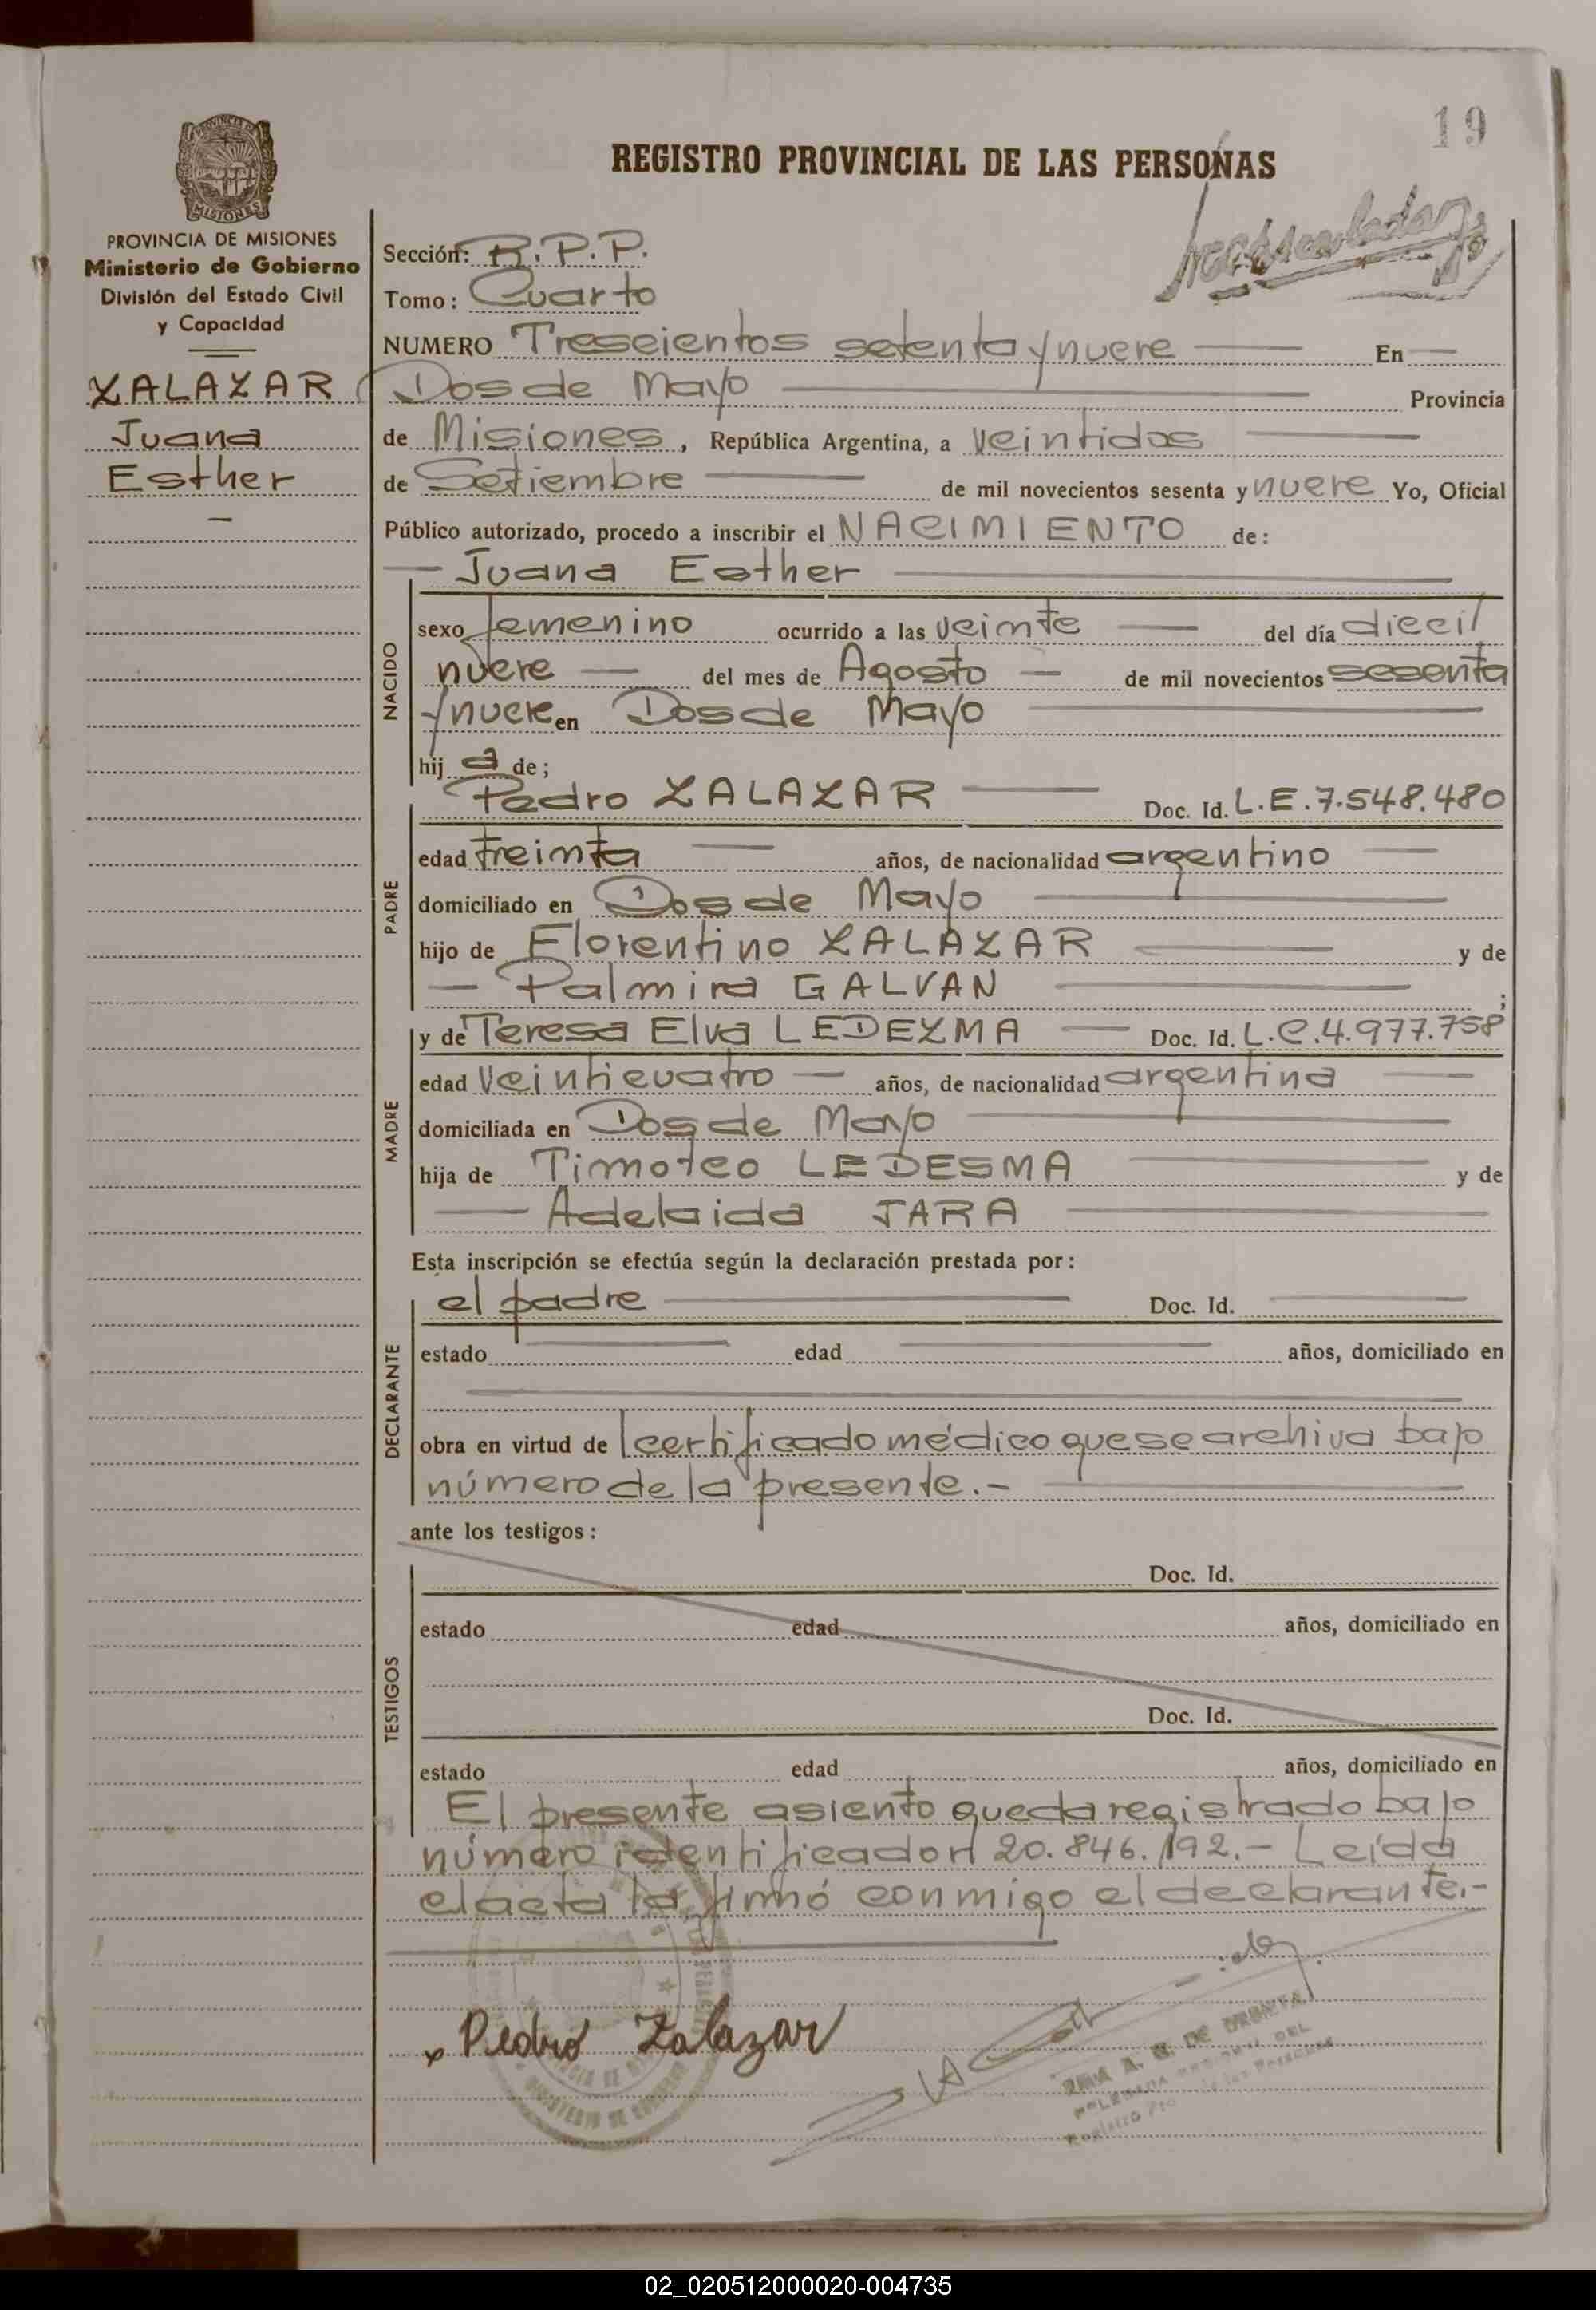 19
REGISTRO PROVINCIAL DE LAS PERSONAS
PROVINCIA DE MISIONES
Ministerio de Gobierno
División del Estado Civil
y Capacidad
ZALAZAR
Juana
Esther
Sección: R.P.P.
Tomo: Cuarto
NUMERO Trescientos setenta y nueve En
Dos de Mayo Provincia
de Misiones, República Argentina, a veintidos
de Setiembre de mil novecientos sesenta y nueve Yo, Oficial
Público autorizado, procedo a inscribir el NACIMIENTO de:
Juana Esther
NACIDO
sexo femenino ocurrido a las veinte del día dieci/
nueve del mes de Agosto de mil novecientos sesenta
y nueve en Dos de Mayo
hij a de;
PADRE
Pedro ZALAZAR Doc. Id. L.E.7.548.480
edad treinta años, de nacionalidad argentino
domiciliado en Dos de Mayo
hijo de Florentino ZALAZAR y de
Palmira GALVAN ;
MADRE
y de Teresa Elva LEDEZMA Doc. Id. L.C.4.977.758
edad veinticuatro años, de nacionalidad argentina
domiciliada en Dos de Mayo
hija de Timoteo LEDESMA y de
Adelaida JARA
Esta inscripción se efectúa según la declaración prestada por:
DECLARANTE
el padre Doc. Id.
estado edad años, domiciliado en
obra en virtud de certificado médico que se archiva bajo
número de la presente.-
ante los testigos:
TESTIGOS
Doc. Id.
estado edad años, domiciliado en
Doc. Id.
estado edad años, domiciliado en
El presente asiento queda registrado bajo
número identificador 20.846.192.- Leída
el acta la firmó conmigo el declarante.-
Pedro Zalazar
02_020512000020-004735